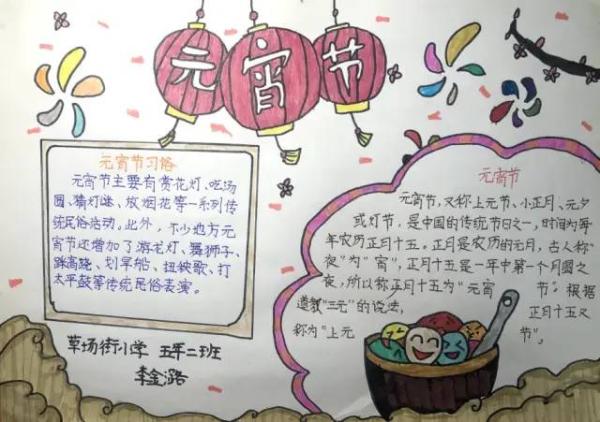 元宵节
元宵节习俗
元宵节主要有赏花灯、吃汤
圆、猜灯谜、放烟花等一系列传
统民俗活动。此外，不少地方元
宵节还增加了游龙灯、舞狮子、
踩高跷、划旱船、扭秧歌、打
太平鼓等传统民俗表演。
草场街小学 五年二班
李金潞
元宵节
元宵节，又称上元节、小正月、元夕
或灯节，是中国的传统节日之一，时间为每
年农历正月十五。正月是农历的元月，古人称
"夜"为"宵"，正月十五是一年中第一个月圆之
夜，所以称正月十五为"元宵节"。根据
道教"三元"的说法，正月十五又
称为"上元节"。